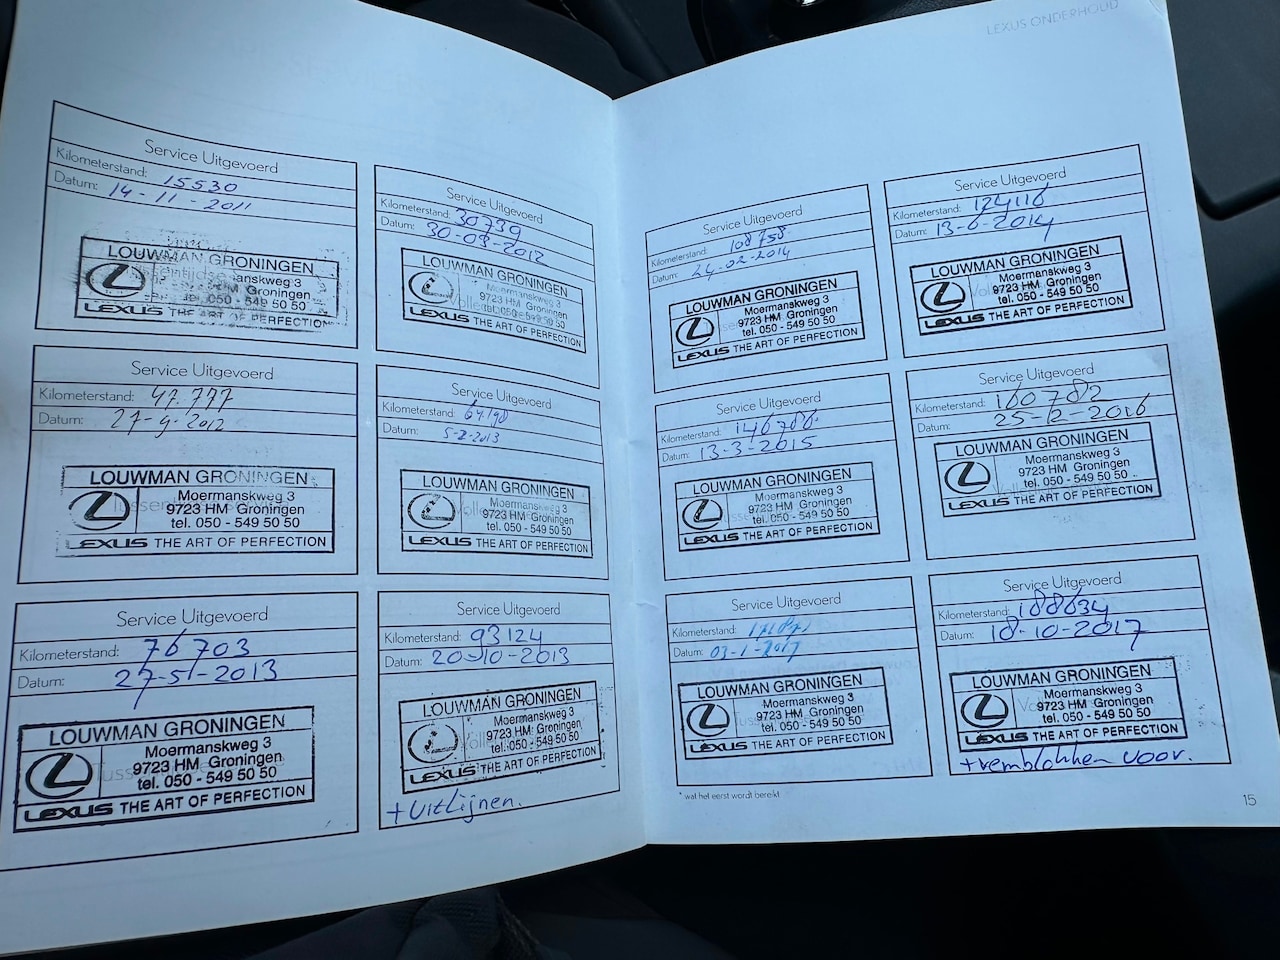 LEXUS ONDERHOUD
Service Uitgevoerd
Kilometerstand: 15530
Datum: 14-11-2011
LOUWMAN GRONINGEN
Moermanskweg 3
9723 HM Groningen
tel. 050 - 549 50 50
LEXUS THE ART OF PERFECTION
Service Uitgevoerd
Kilometerstand: 30739
Datum: 30-03-2012
LOUWMAN GRONINGEN
Moermanskweg 3
9723 HM Groningen
tel. 050 - 549 50 50
LEXUS THE ART OF PERFECTION
Service Uitgevoerd
Kilometerstand: 47.777
Datum: 27-9-2012
LOUWMAN GRONINGEN
Moermanskweg 3
9723 HM Groningen
tel. 050 - 549 50 50
LEXUS THE ART OF PERFECTION
Service Uitgevoerd
Kilometerstand: 64198
Datum: 5-2-2013
LOUWMAN GRONINGEN
Moermanskweg 3
9723 HM Groningen
tel. 050 - 549 50 50
LEXUS THE ART OF PERFECTION
Service Uitgevoerd
Kilometerstand: 76703
Datum: 27-5-2013
LOUWMAN GRONINGEN
Moermanskweg 3
9723 HM Groningen
tel. 050 - 549 50 50
LEXUS THE ART OF PERFECTION
Service Uitgevoerd
Kilometerstand: 93124
Datum: 20-10-2013
LOUWMAN GRONINGEN
Moermanskweg 3
9723 HM Groningen
tel. 050 - 549 50 50
LEXUS THE ART OF PERFECTION
+ Uitlijnen.
Service Uitgevoerd
Kilometerstand: 108758
Datum: 24-02-2014
LOUWMAN GRONINGEN
Moermanskweg 3
9723 HM Groningen
tel. 050 - 549 50 50
LEXUS THE ART OF PERFECTION
Service Uitgevoerd
Kilometerstand: 124116
Datum: 13-6-2014
LOUWMAN GRONINGEN
Moermanskweg 3
9723 HM Groningen
tel. 050 - 549 50 50
LEXUS THE ART OF PERFECTION
Service Uitgevoerd
Kilometerstand: 146786
Datum: 13-3-2015
LOUWMAN GRONINGEN
Moermanskweg 3
9723 HM Groningen
tel. 050 - 549 50 50
LEXUS THE ART OF PERFECTION
Service Uitgevoerd
Kilometerstand: 160782
Datum: 25-2-2016
LOUWMAN GRONINGEN
Moermanskweg 3
9723 HM Groningen
tel. 050 - 549 50 50
LEXUS THE ART OF PERFECTION
Service Uitgevoerd
Kilometerstand:
Datum: 03-1-2017
LOUWMAN GRONINGEN
Moermanskweg 3
9723 HM Groningen
tel. 050 - 549 50 50
LEXUS THE ART OF PERFECTION
Service Uitgevoerd
Kilometerstand: 188634
Datum: 18-10-2017
LOUWMAN GRONINGEN
Moermanskweg 3
9723 HM Groningen
tel. 050 - 549 50 50
LEXUS THE ART OF PERFECTION
+ remblokken voor.
* wat het eerst wordt bereikt
15